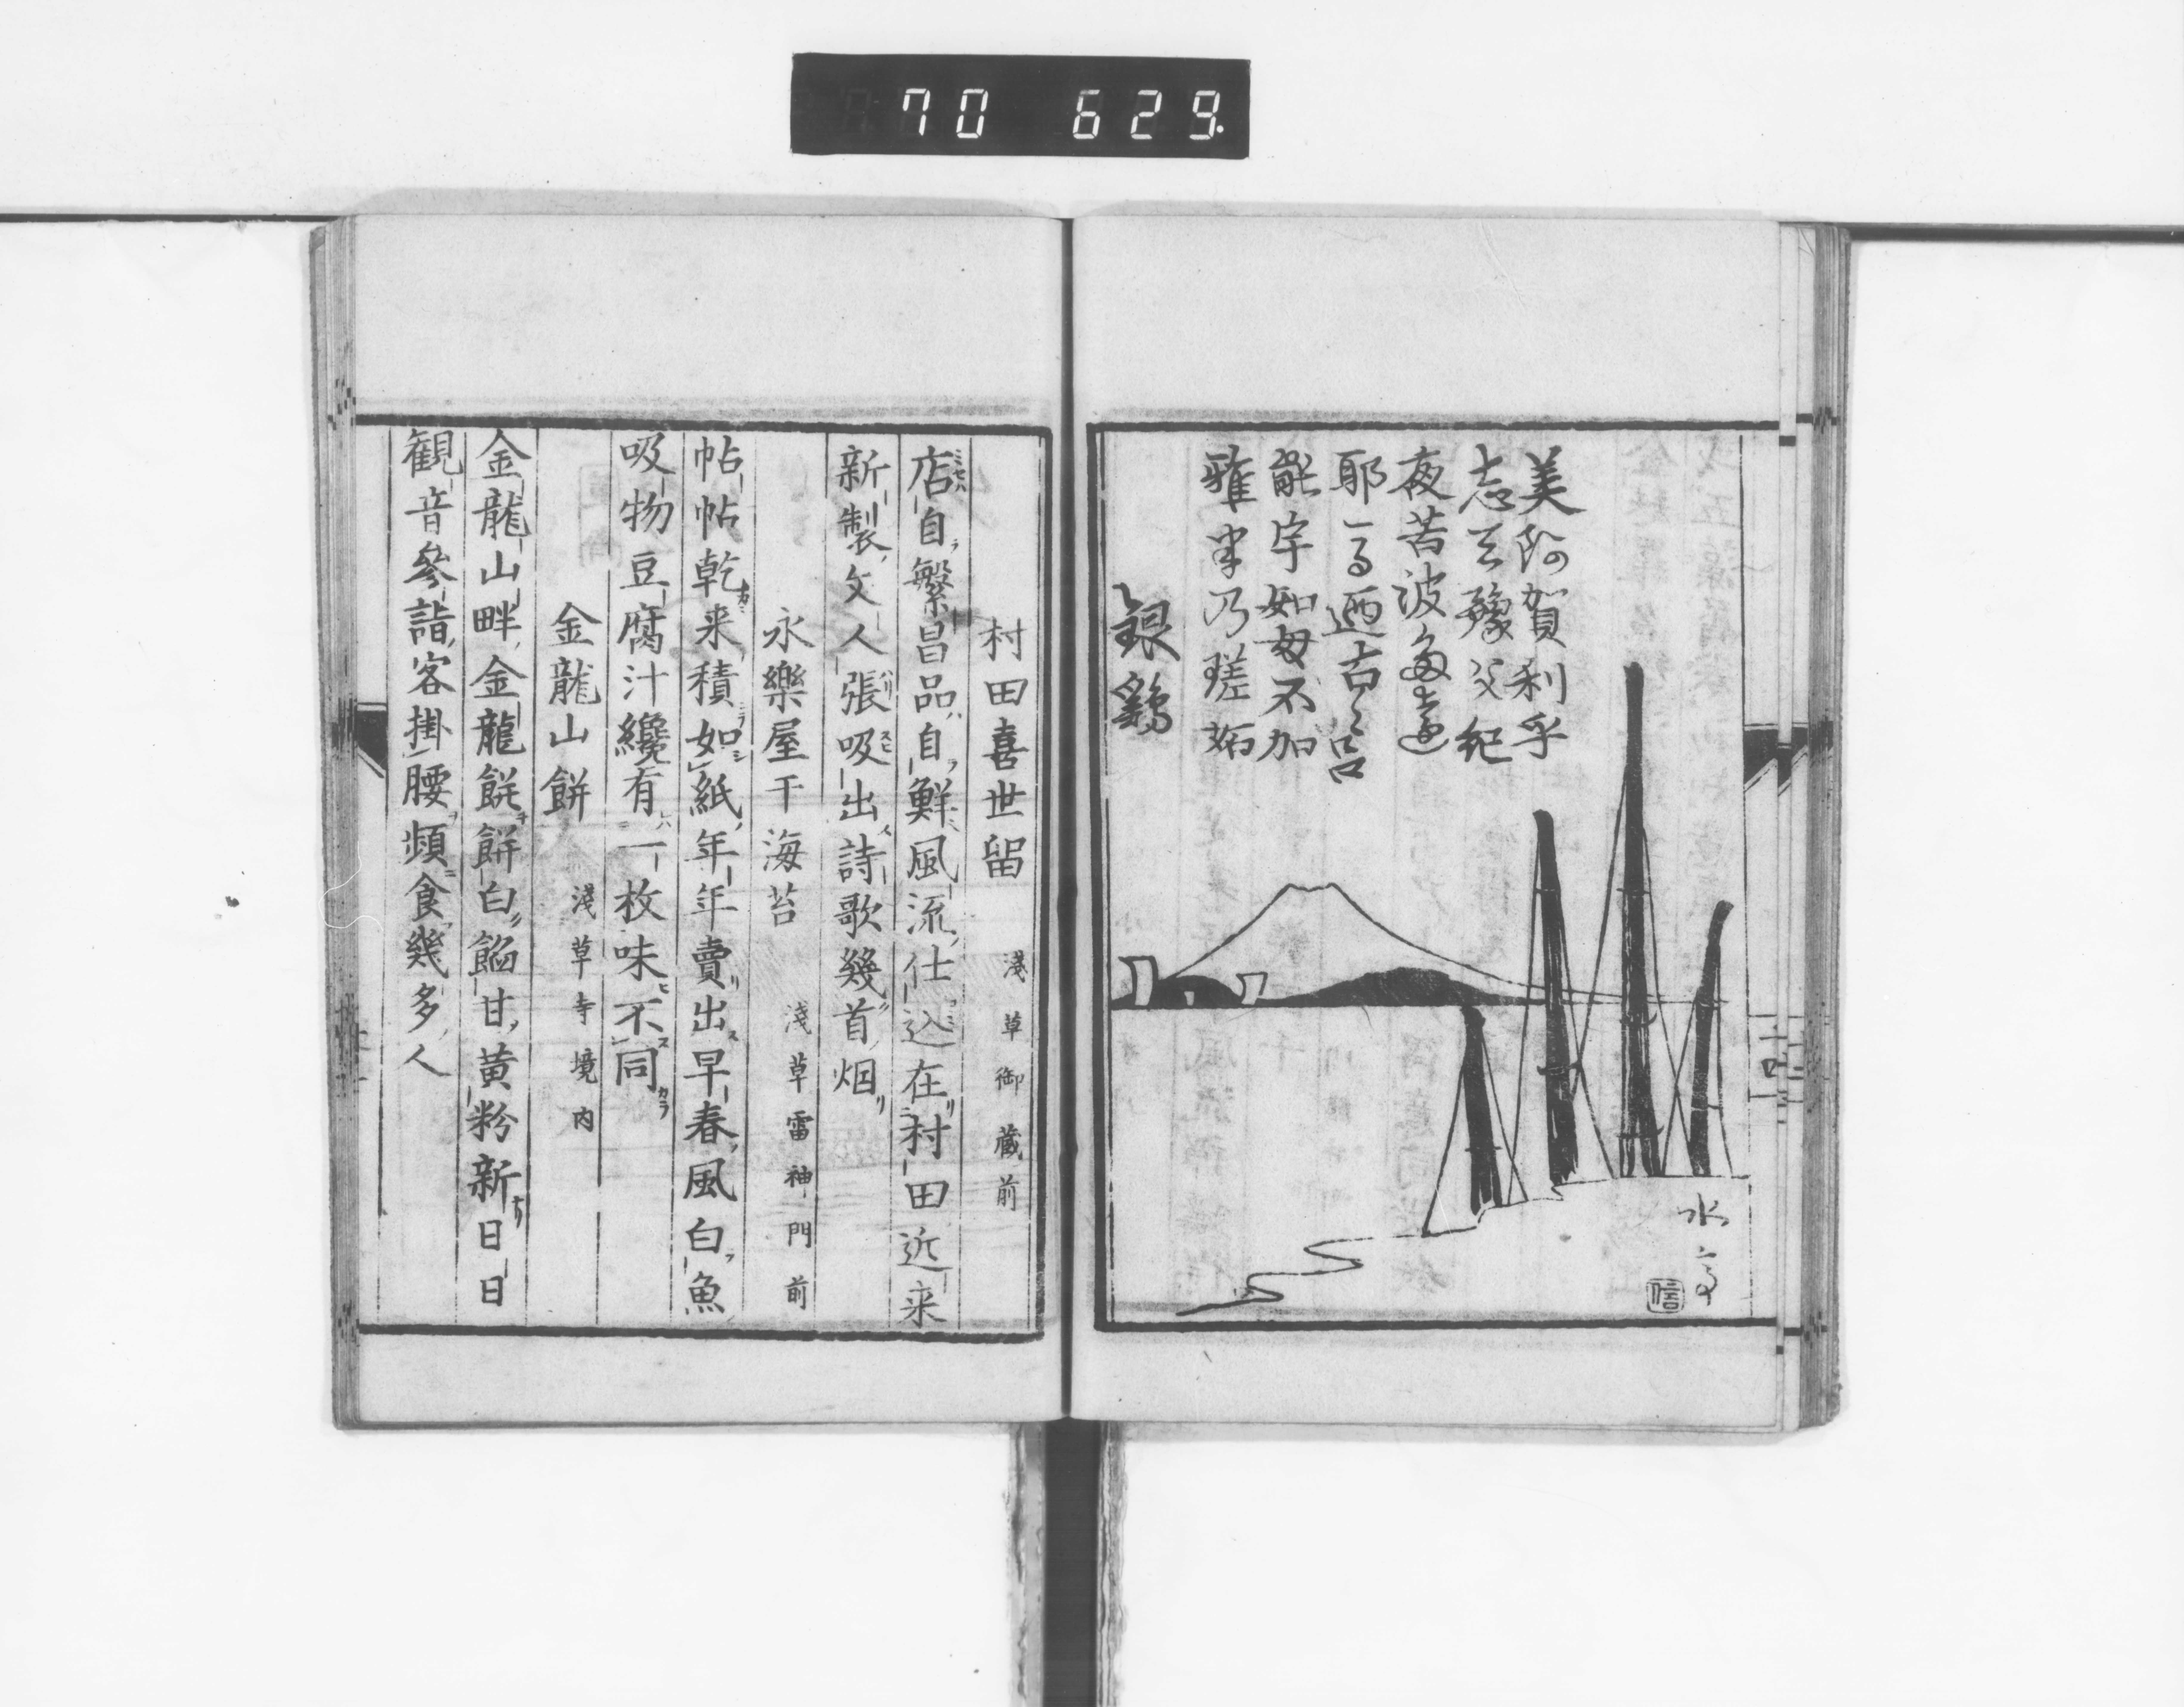 70 629.
美阿賀利乎
夜苦波
能宇如毎不加
銀鷄
水亭
信
村田喜世留 淺草御蔵前
店自繁昌品自鮮風流仕込在村田近来
新製文人張吸出詩歌幾首烟
永樂屋干海苔 淺草雷神門前
帖帖乾来積如紙年年賣出早春風白魚
吸物豆腐汁纔有一枚味不同
金龍山餅 淺草寺境内
金龍山畔金龍餅餅白餡甘黄粉新日日
観音參詣客掛腰頻食幾多人